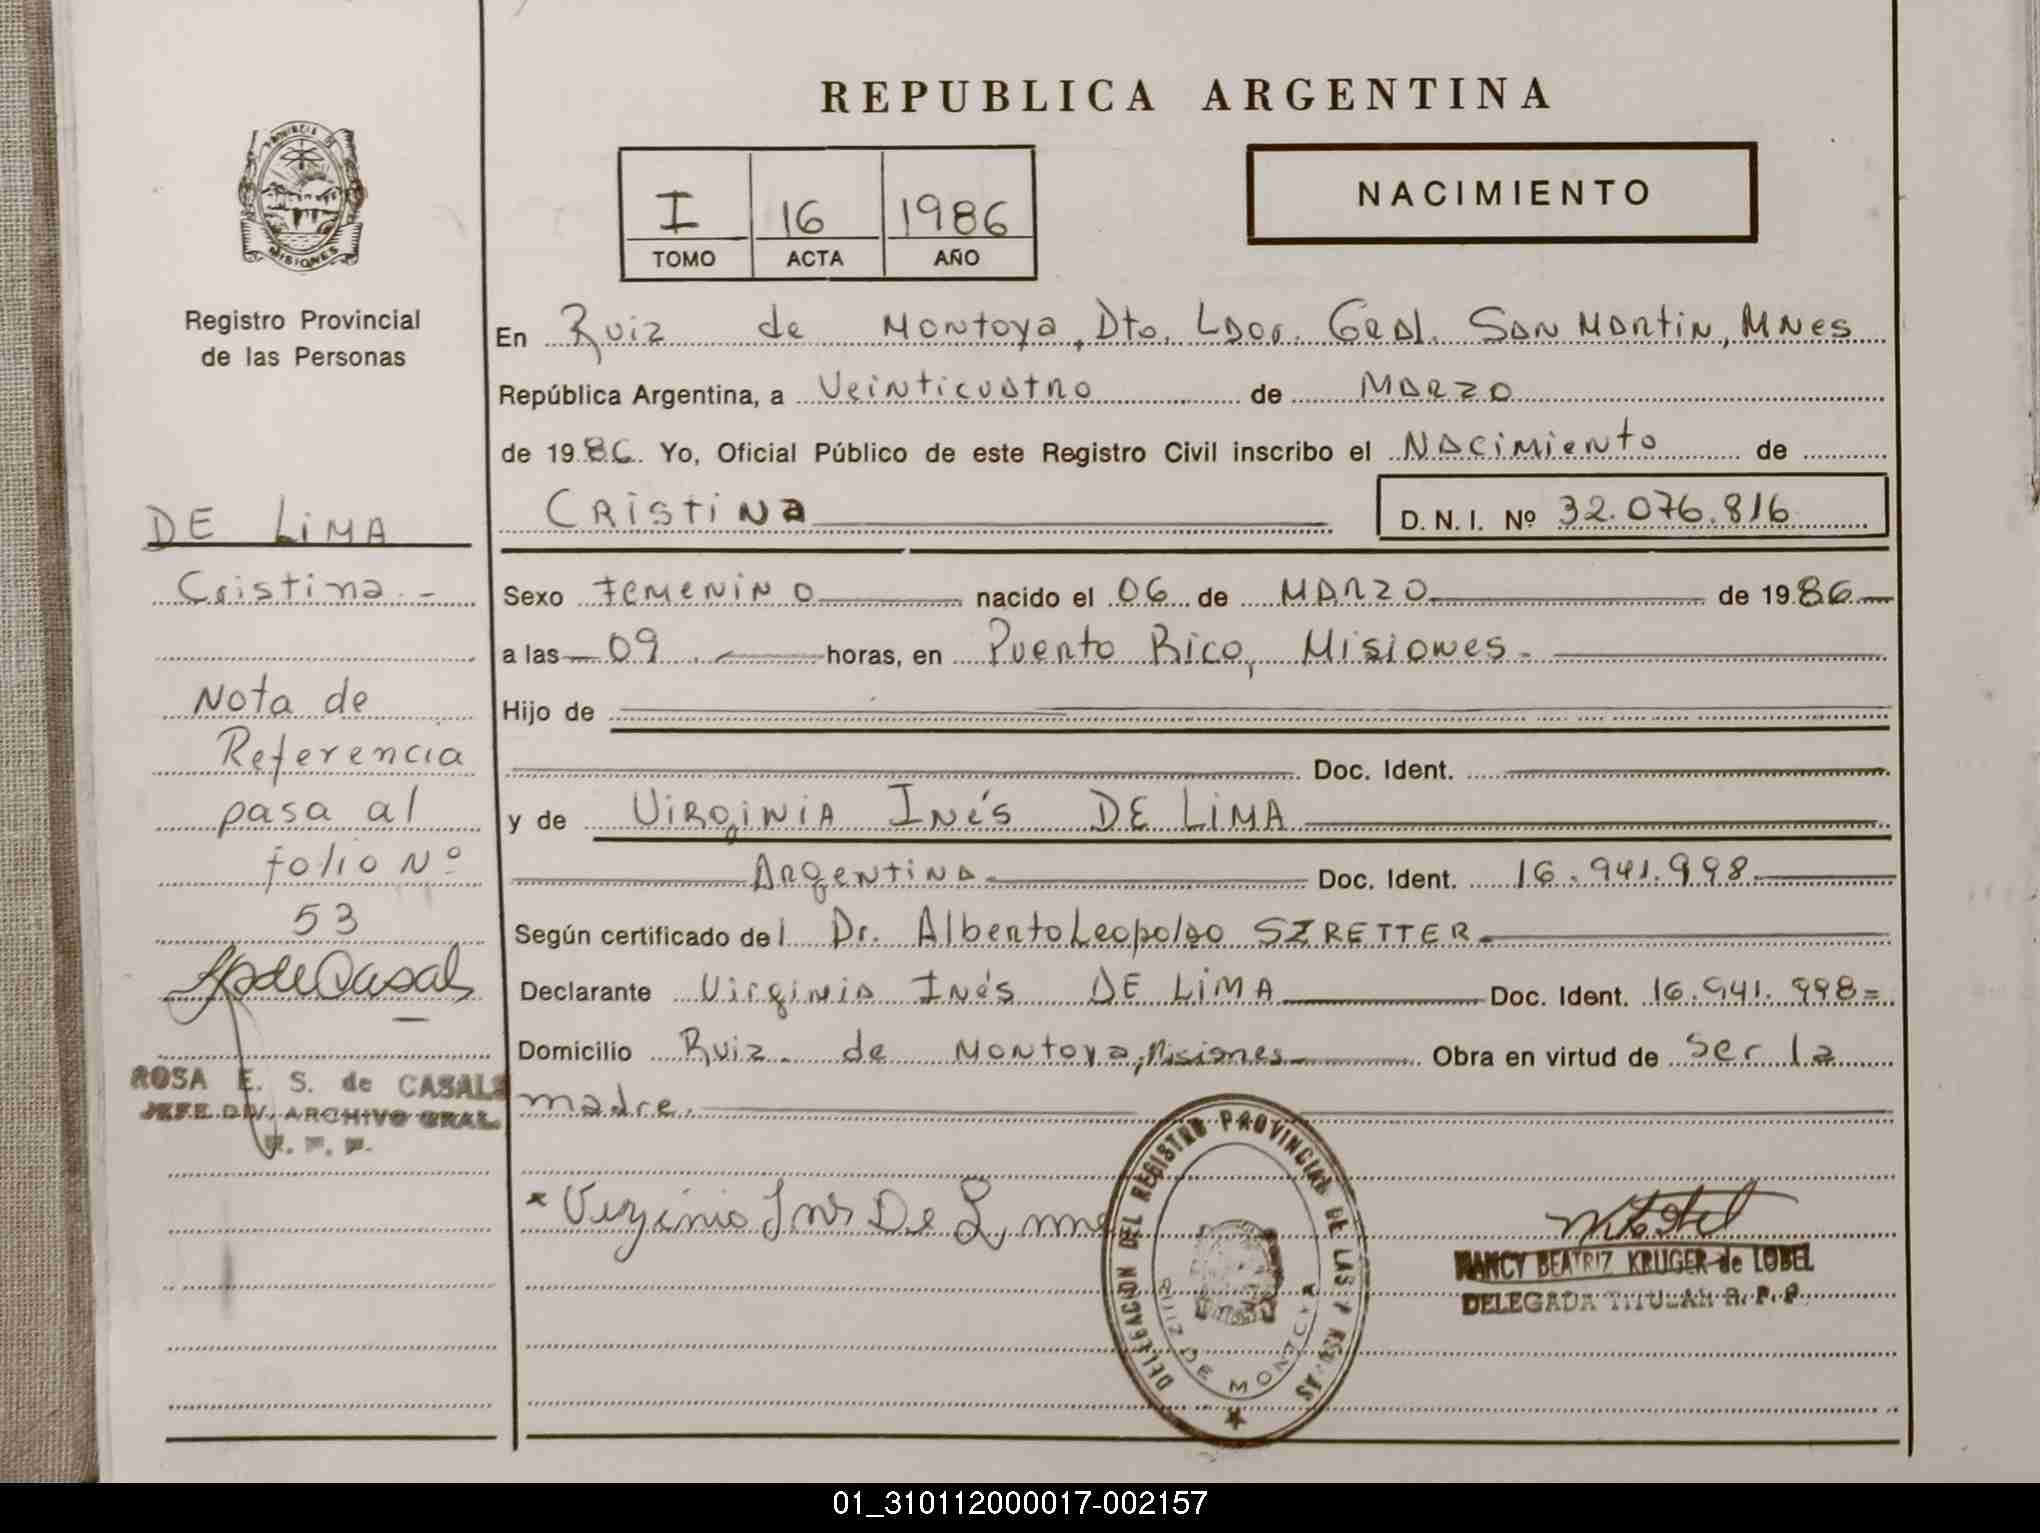 PROVINCIA DE
MISIONES
Registro Provincial
de las Personas
DE LIMA
Cristina.-
Nota de
Referencia
pasa al
folio Nº
53
ROSA E. S. de CASALS
JEFE DIV. ARCHIVO GRAL.
REPUBLICA ARGENTINA
I 16 1986
TOMO ACTA AÑO
NACIMIENTO
En Ruiz de Montoya, Dto. Ldor. Gral. San Martin, Mnes
República Argentina, a Veinticuatro de Marzo
de 1986. Yo, Oficial Público de este Registro Civil inscribo el Nacimiento de
Cristina D. N. I. Nº 32.076.816
Sexo Femenino nacido el 06 de Marzo de 1986
a las 09 horas, en Puerto Rico, Misiones.
Hijo de
Doc. Ident.
y de Virginia Inés DE LIMA
Argentina. Doc. Ident. 16.941.998
Según certificado del Dr. Alberto Leopoldo SZRETTER.
Declarante Virginia Inés DE LIMA Doc. Ident. 16.941.998=
Domicilio Ruiz de Montoya, Misiones Obra en virtud de ser la
madre.
DELEGACION DEL REGISTRO PROVINCIAL DE LAS PERSONAS
RUIZ DE MONTOYA
NANCY BEATRIZ KRUGER de LOBEL
DELEGADA TITULAR R. P. P.
01_310112000017-002157